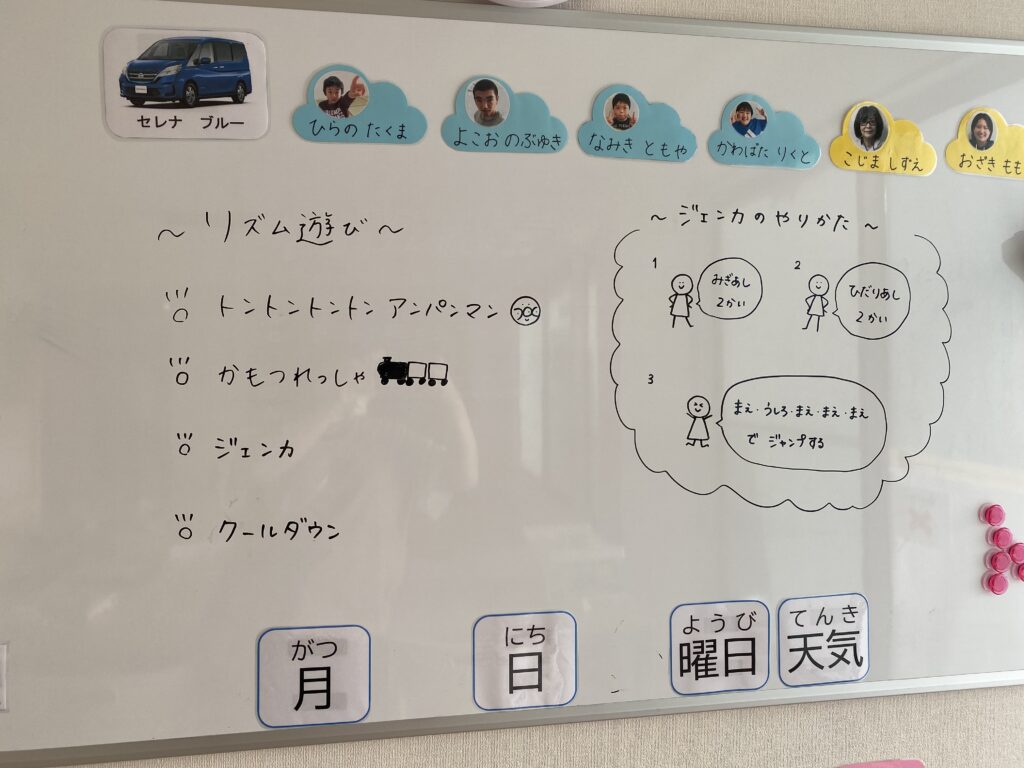 セレナ ブルー
ひらの たくま
よこお のぶゆき
なみき ともや
かわばた りくと
こじま しずえ
おざき もも
～リズム遊び～
トントントントン アンパンマン
かもつれっしゃ
ジェンカ
クールダウン
～ジェンカのやりかた～
1
みぎあし
2かい
2
ひだりあし
2かい
3
まえ・うしろ・まえ・まえ・まえ
で ジャンプする
がつ
月
にち
日
ようび
曜日
てんき
天気